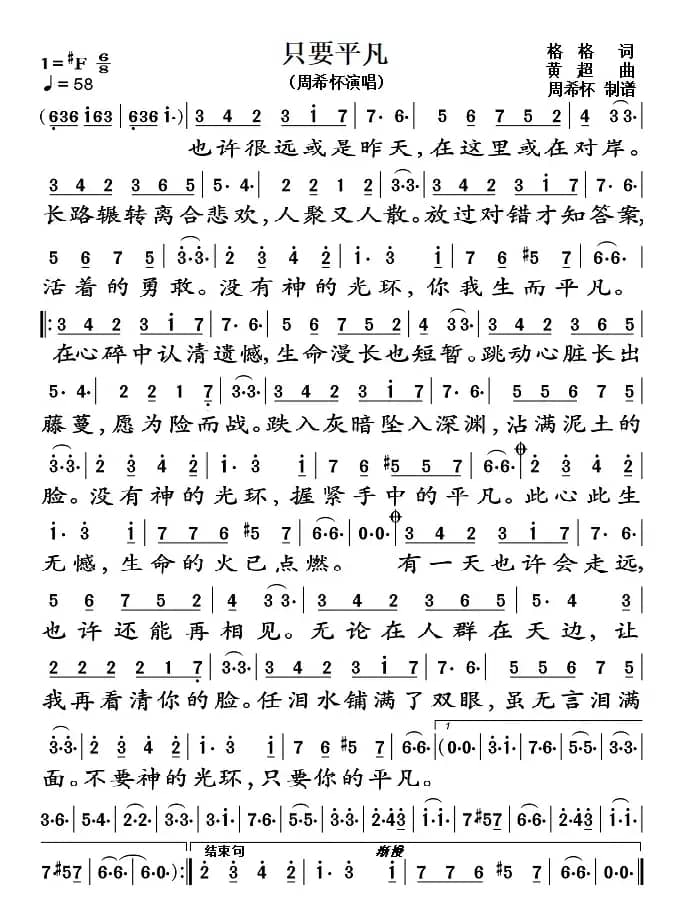 只要平凡
1=#F 6/8
格格 词
♩=58
(周希怀演唱)
黄超 曲
周希怀 制谱
(636 i63 | 636 i·) | 3 4 2 3 i 7 | 7· 6· | 5 6 7 5 2 | 4 3 3· |
也许很远或是昨天,在这里或在对岸。
3 4 2 3 6 5 | 5· 4· | 2 2 2 1 2 | 3·3· | 3 4 2 3 i 7 | 7· 6· |
长路辗转离合悲欢,人聚又人散。放过对错才知答案,
5 6 7 5 | 3·3· | 2 3 4 2 | i· 3 i | 7 6 #5 7 | 6·6· |
活着的勇敢。没有神的光环,你我生而平凡。
‖: 3 4 2 3 i 7 | 7· 6· | 5 6 7 5 2 | 4 3 3· | 3 4 2 3 6 5 |
在心碎中认清遗憾,生命漫长也短暂。跳动心脏长出
5· 4· | 2 2 1 7 | 3·3· | 3 4 2 3 i 7 | 7· 6· | 5 5 6 7 5 |
藤蔓,愿为险而战。跌入灰暗坠入深渊,沾满泥土的
3·3· | 2 3 4 2 | i· 3 i | 7 6 #5 5 7 | 6·6· | 2 3 4 2 |
脸。没有神的光环,握紧手中的平凡。此心此生
i· 3 i | 7 7 6 #5 7 | 6·6· | 0·0· | 3 4 2 3 i 7 | 7· 6· |
无憾,生命的火已点燃。 有一天也许会走远,
5 6 7 5 2 | 4 3 3· | 3 4 2 3 6 5 | 5· 4 3 |
也许还能再相见。无论在人群在天边,让
2 2 2 2 1 7 | 3·3· | 3 4 2 3 i 7 | 7· 6· | 5 5 6 7 5 |
我再看清你的脸。任泪水铺满了双眼,虽无言泪满
3·3· | 2 3 4 2 | i· 3 i | 7 6 #5 7 | 6·6· | 1 (0·0· | 3·i· | 7·6· | 5·5· | 3·3· |
面。不要神的光环,只要你的平凡。
3·6· | 5·4· | 2·2· | 3·3· | 3·i· | 7·6· | 5·5· | 3·3· | 2·43 | i·i· | 7#57 | 6·6· | 2·43 | i·i· |
结束句 渐慢
7#57 | 6·6· | 6·0·) :‖ 2 3 4 2 | i· 3 i | 7 6 #5 7 | 6·6· | 6·6· ‖